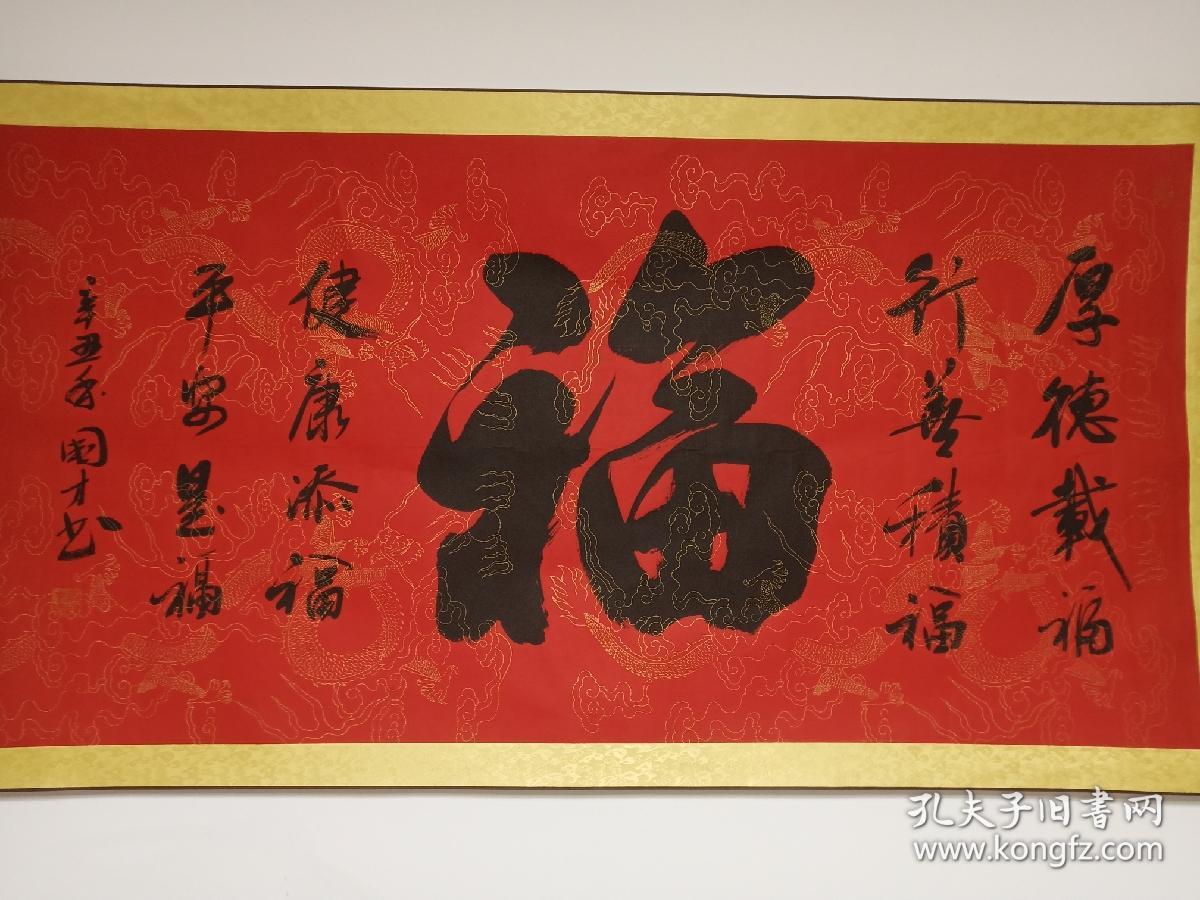 厚德載福
行善積福
福
健康添福
平安是福
辛丑年國才书
孔夫子旧书网
www.kongfz.com